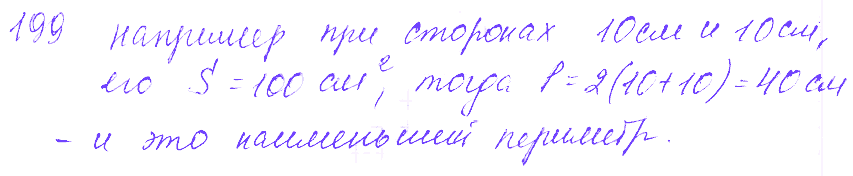 199 например при сторонах 10см и 10см,
его S = 100 см², тогда P = 2(10+10) = 40 см
- и это наименьший периметр.